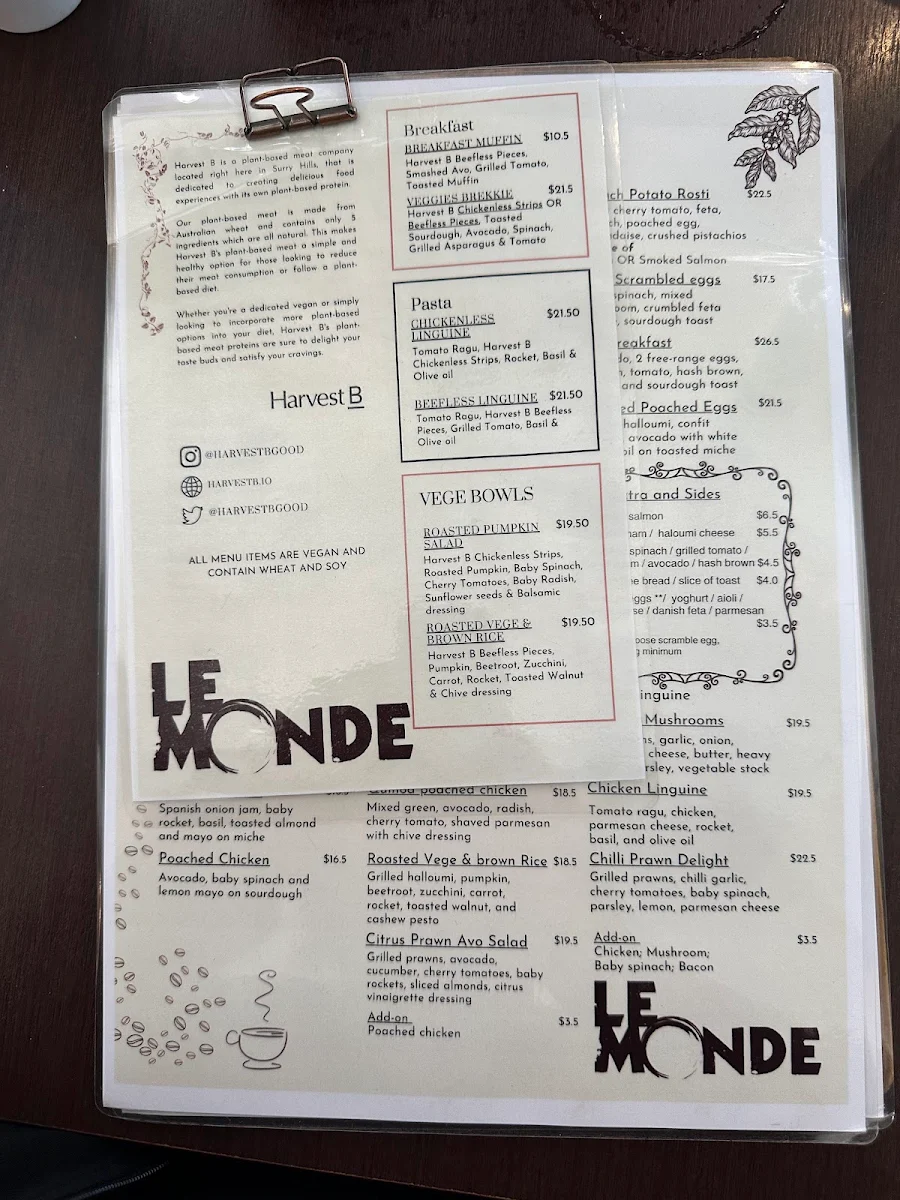 Harvest B is a plant-based meat company
located right here in Surry Hills, that is
dedicated to creating delicious food
experiences with its own plant-based protein.
Our plant-based meat is made from
Australian wheat and contains only 5
ingredients which are all natural. This makes
Harvest B's plant-based meat a simple and
healthy option for those looking to reduce
their meat consumption or follow a plant-
based diet.
Whether you're a dedicated vegan or simply
looking to incorporate more plant-based
options into your diet, Harvest B's plant-
based meat proteins are sure to delight your
taste buds and satisfy your cravings.
Harvest B
@HARVESTBGOOD
HARVESTB.IO
@HARVESTBGOOD
ALL MENU ITEMS ARE VEGAN AND
CONTAIN WHEAT AND SOY
LE
MONDE
Breakfast
BREAKFAST MUFFIN $10.5
Harvest B Beefless Pieces,
Smashed Avo, Grilled Tomato,
Toasted Muffin
VEGGIES BREKKIE $21.5
Harvest B Chickenless Strips OR
Beefless Pieces, Toasted
Sourdough, Avocado, Spinach,
Grilled Asparagus & Tomato
Pasta
CHICKENLESS $21.50
LINGUINE
Tomato Ragu, Harvest B
Chickenless Strips, Rocket, Basil &
Olive oil
BEEFLESS LINGUINE $21.50
Tomato Ragu, Harvest B Beefless
Pieces, Grilled Tomato, Basil &
Olive oil
VEGE BOWLS
ROASTED PUMPKIN $19.50
SALAD
Harvest B Chickenless Strips,
Roasted Pumpkin, Baby Spinach,
Cherry Tomatoes, Baby Radish,
Sunflower seeds & Balsamic
dressing
ROASTED VEGE & $19.50
BROWN RICE
Harvest B Beefless Pieces,
Pumpkin, Beetroot, Zucchini,
Carrot, Rocket, Toasted Walnut
& Chive dressing
Potato Rosti $22.5
cherry tomato, feta,
poached egg,
crushed pistachios
of
OR Smoked Salmon
Scrambled eggs $17.5
spinach, mixed
crumbled feta
, sourdough toast
$26.5
2 free-range eggs,
tomato, hash brown,
and sourdough toast
Poached Eggs $21.5
halloumi, confit
avocado with white
on toasted miche
and Sides
salmon $6.5
/ haloumi cheese $5.5
spinach / grilled tomato /
/ avocado / hash brown $4.5
bread / slice of toast $4.0
**/ yoghurt / aioli /
/ danish feta / parmesan
$3.5
scramble egg,
minimum
Mushrooms $19.5
garlic, onion,
cheese, butter, heavy
vegetable stock
Chicken Linguine $19.5
Tomato ragu, chicken,
parmesan cheese, rocket,
basil, and olive oil
Chilli Prawn Delight $22.5
Grilled prawns, chilli garlic,
cherry tomatoes, baby spinach,
parsley, lemon, parmesan cheese
Add-on $3.5
Chicken; Mushroom;
Baby spinach; Bacon
LE
MONDE
Spanish onion jam, baby
rocket, basil, toasted almond
and mayo on miche
Poached Chicken $16.5
Avocado, baby spinach and
lemon mayo on sourdough
Quinoa poached chicken $18.5
Mixed green, avocado, radish,
cherry tomato, shaved parmesan
with chive dressing
Roasted Vege & brown Rice $18.5
Grilled halloumi, pumpkin,
beetroot, zucchini, carrot,
rocket, toasted walnut, and
cashew pesto
Citrus Prawn Avo Salad $19.5
Grilled prawns, avocado,
cucumber, cherry tomatoes, baby
rockets, sliced almonds, citrus
vinaigrette dressing
Add-on $3.5
Poached chicken